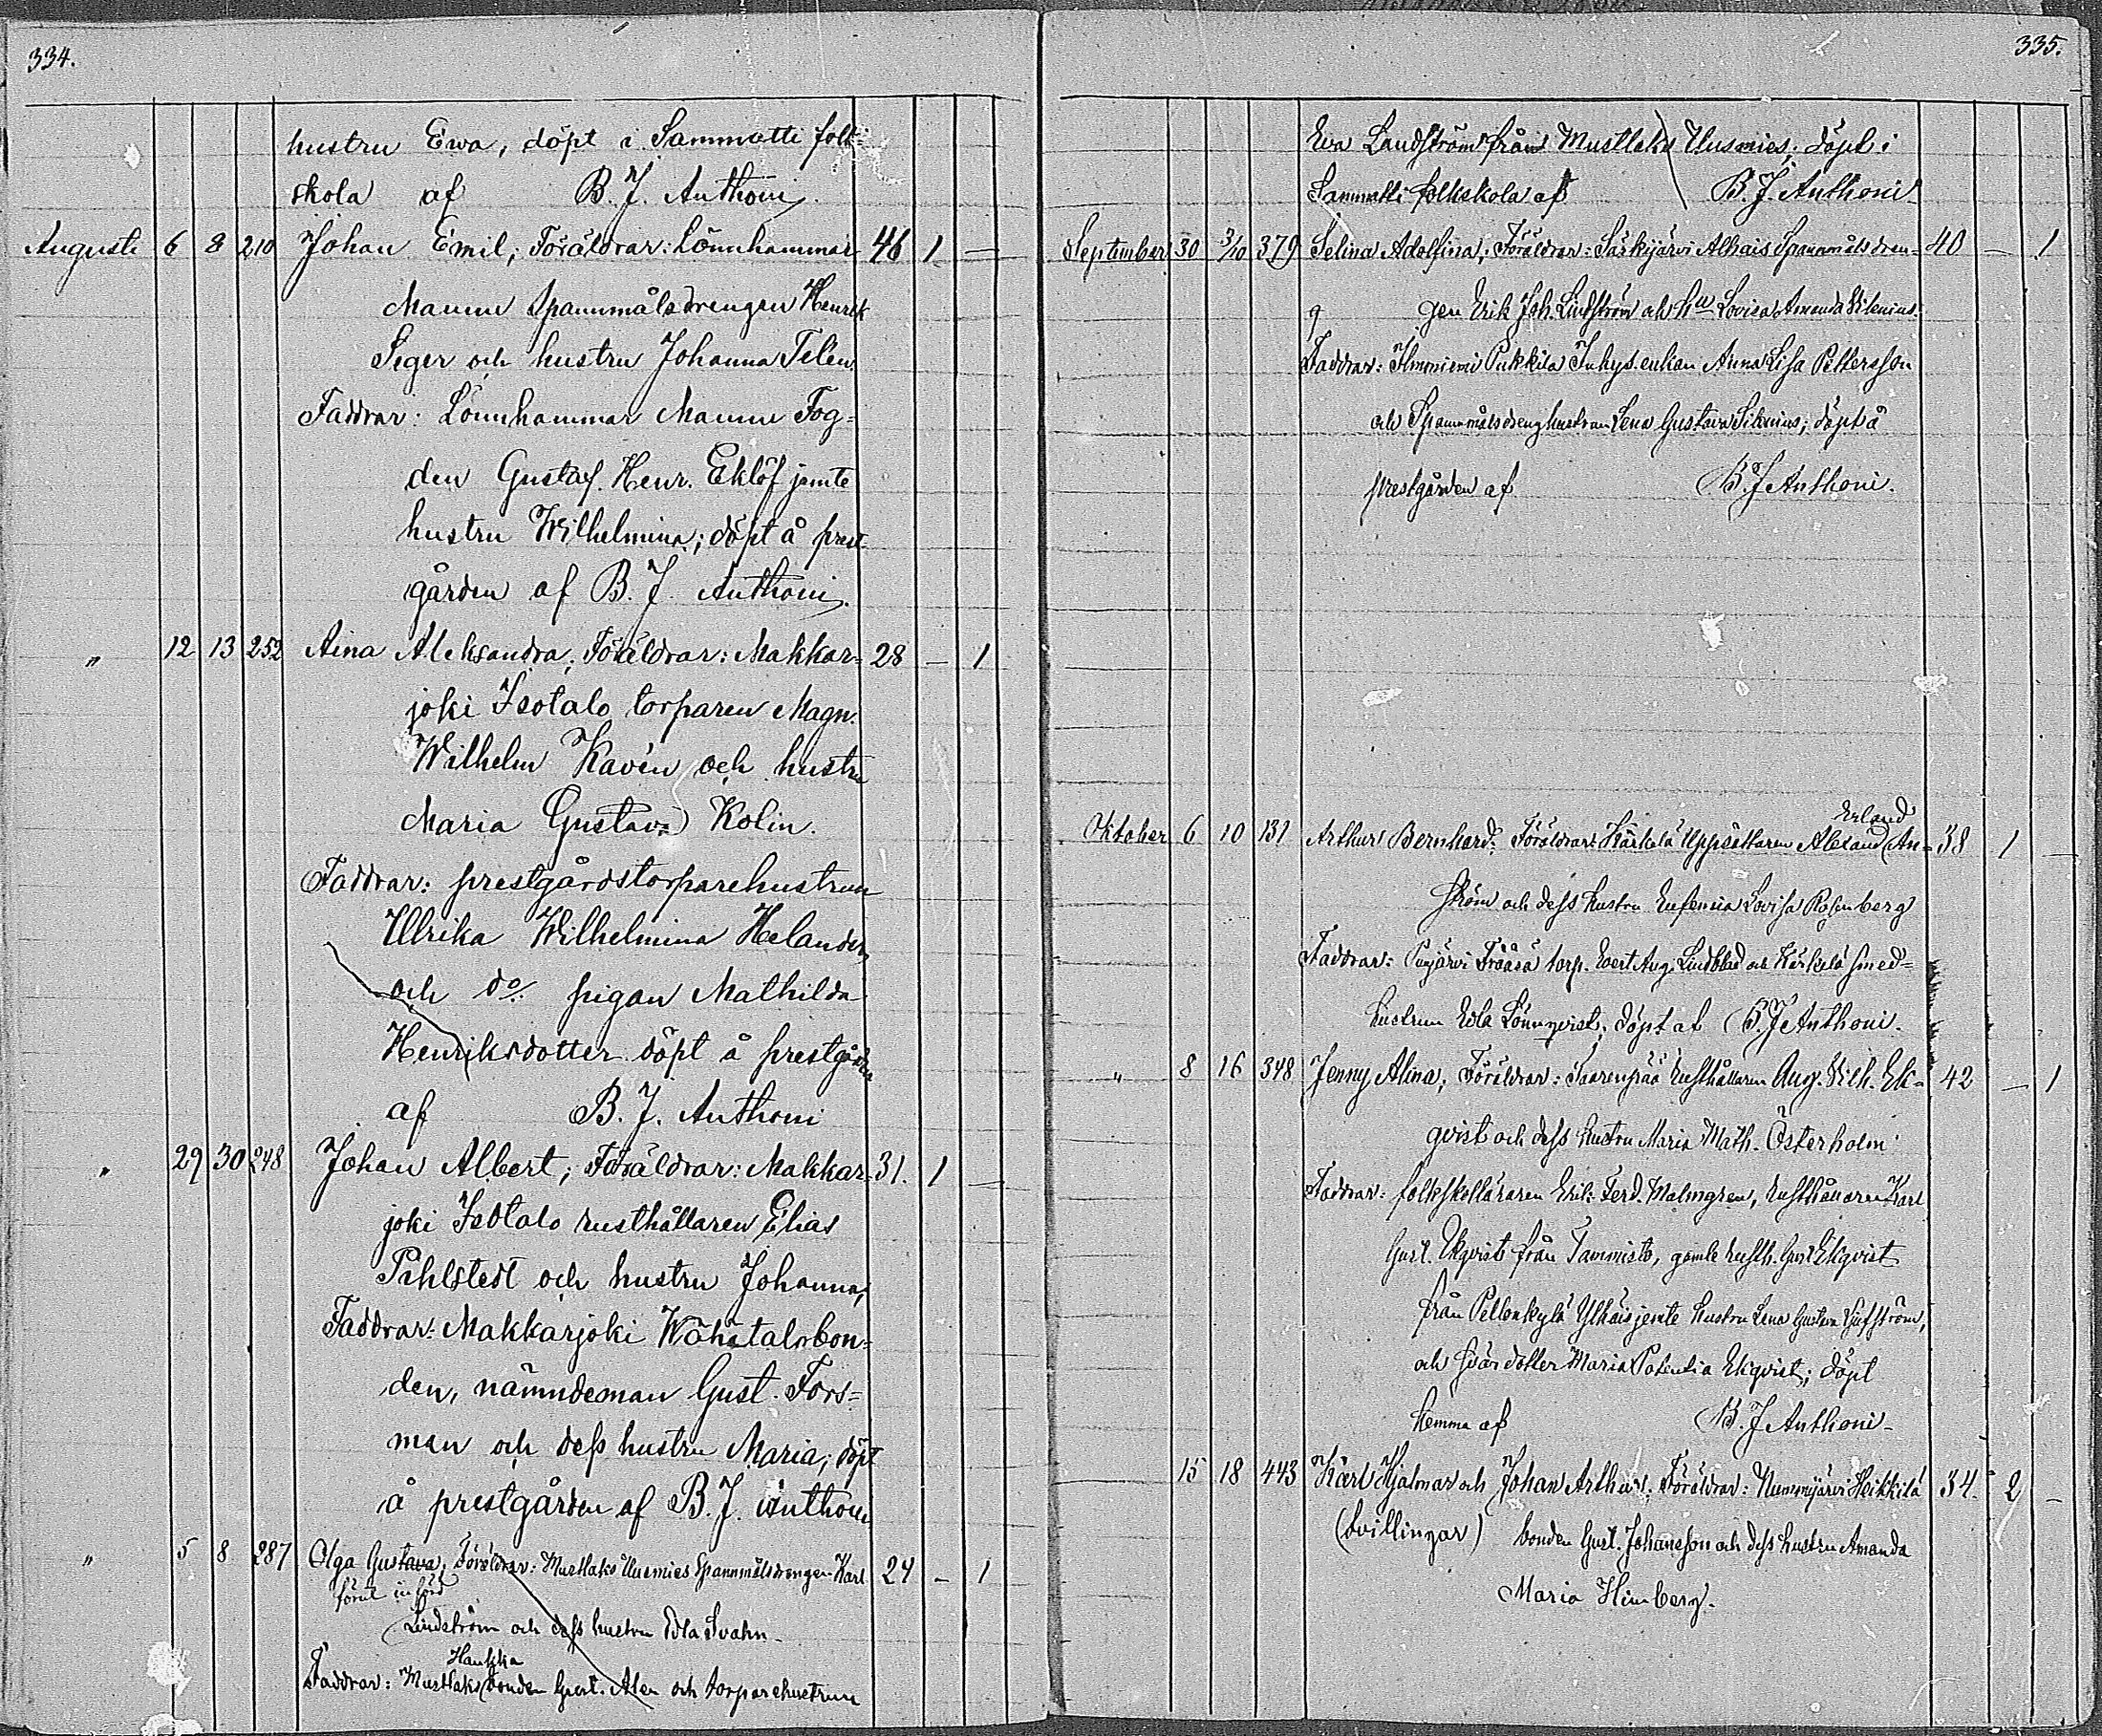 334.
hustru Ewa, döpt i Sammatti folk-
skola af B. J. Anthoni.
Augusti 6 8 210 Johan Emil; Föräldrar: Lönnhammar 46 1 —
Mannu Spannmålsdrengen Henrik
Seger och hustru Johanna Telén.
Faddrar: Lönnhammar Mannu Fog=
den Gustaf. Henr. Eklöf jemte
hustru Wilhelmina; döpt å prest-
gården af B. J. Anthoni.
" 12 13 252 Aina Aleksandra; Föräldrar: Makkar= 28 — 1
joki Isotalo torparen Magn.
Wilhelm Kavén och hustru
Maria Gustava Kolin.
Faddrar: prestgårdstorparehustrun
Ulrika Wilhelmina Helander
och do pigan Mathilda
Henriksdotter döpt å prestgården
af B. J. Anthoni
" 29 30 248 Johan Albert; Föräldrar: Makkar- 31. 1 —
joki Isotalo rusthållaren Elias
Pihlstedt och hustru Johanna,
Faddrar: Makkarjoki Wähätalobon=
den, nämndeman Gust. Fors=
man och dess hustru Maria; döpt
å prestgården af B. J. Anthoni
" 5 8 287 Olga Gustava; Föräldrar: Mustlaks Uusmies Spannmålsdrengen Karl 24 — 1
förut införd
Lindström och dess hustru Edla Svahn
Haukka
Faddrar: Mustlaks bonden Gust. Alen och torparehustrun
335.
Eva Landström från Mustlaks Uusmies; döpt i
Sammatti folkskola af B. J. Anthoni
September 30 3/10 379 Selina Adolfina; Föräldrar: Särkijärvi Alhais Spannmålsdren= 40 — 1
gen Erik Joh. Lindström och hu Lovisa Amanda Silenius.
Faddrar: Ilmoniemi Pukkila Inhys.enkan Anna Lisa Pettersson
och Spannmålsdrenghustrun Lena Gustava Silenius; döpt å
prestgården af B. J Anthoni.
Erland
Oktober 6 10 131 Arthur Bernhard; Föräldrar: Kärkelä Uppsättaren Alexand An= 38 1 —
ström och dess hustru Eufemia Lovisa Rosenberg
Faddrar: torp. Evert Aug. Lindblad och Kärkelä smed=
hustrun Edla Lönnqvist; döpt af B. J Anthoni.
" 8 16 348 Jenny Alina; Föräldrar: Saarenpää Rusthållaren Aug. Wilh. Ek= 42 — 1
qvist och dess hustru Maria Math. Österholm
Faddrar: folkskolläraren Erik Ferd. Malmgren, Rusthållaren Karl
Gust. Ekqvist från Tammisto, gamle rusth. Gust Ekqvist
från Pellonkylä Ylhäis jemte hustru Lena Gustava
och svärdotter Maria Ekqvist; döpt
hemma af B. J Anthoni-
15 18 443 Karl Hjalmar och Johan Arthur; Föräldrar: Nummijärvi Heikkilä 34. 2 —
(tvillingar) bonden Gust. Johansson och dess hustru Amanda
Maria Himberg.